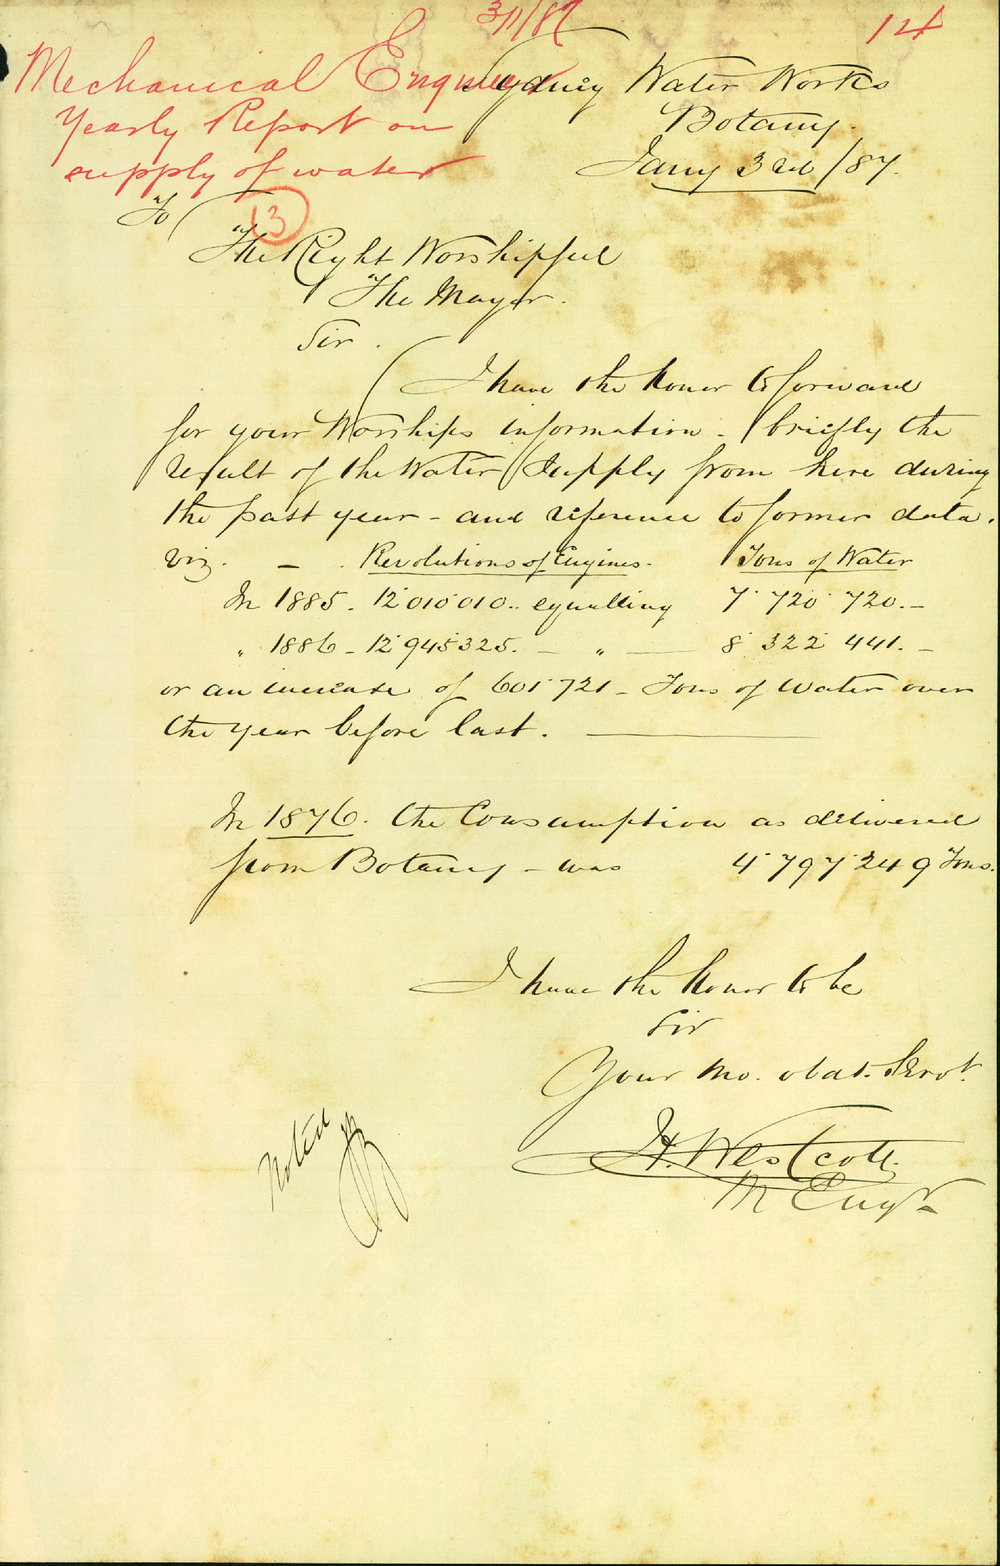 3/1/87
14
Mechanical Engineer
Yearly Report on
supply of water
13
Sydney Water Works
Botany.
Jany 3rd /87.
To
The Right Worshipful
The Mayor.
Sir.
I have the honor to forward
for your Worships information - briefly the
result of the Water Supply from here during
the past year - and reference to former data.
viz. - . Revolutions of Engines. Tons of Water
In 1885. 12·010·010.. equalling 7· 720· 720.-
„ 1886 - 12·945325. - „ - 8· 322· 441. -
or an increase of 601·721 - Tons of Water over
the year before last.
In 1876. the Consumption as delivered
from Botany - was 4·797·249 Tons.
I have the honor to be
Sir
Your Mo. obdt. Servt.
H. Westcott
M Engr
Noted